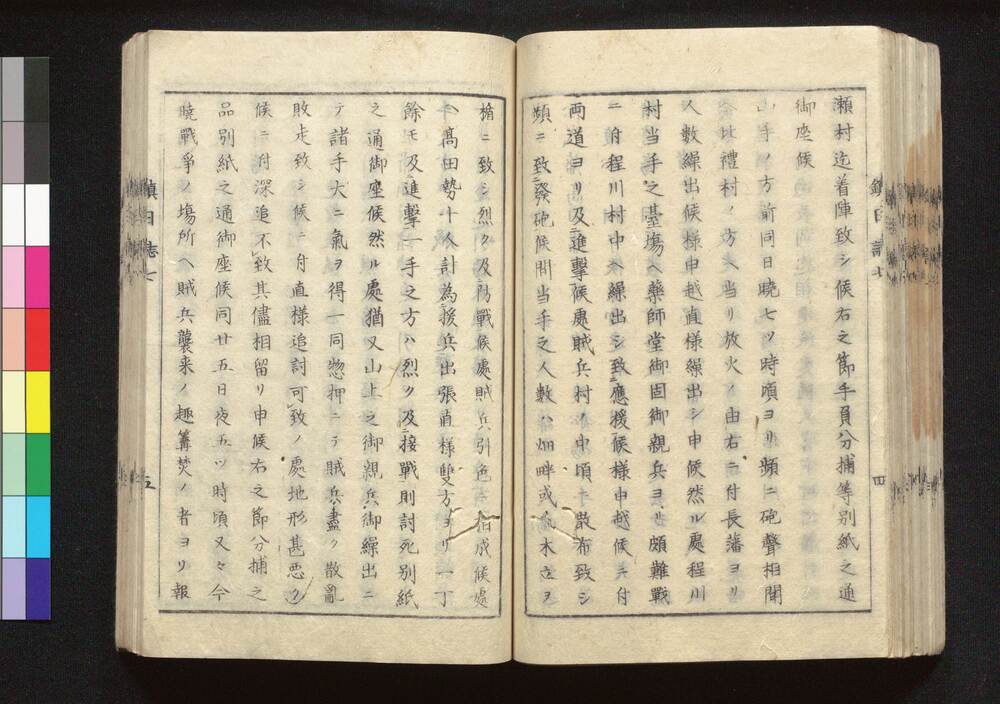 瀬村迄着陣致シ候右之節手負分捕等別紙之通
御座候
山手ノ方前同日曉七ツ時頃ヨリ頻ニ砲聲相聞
比禮村ノ方ヘ当リ放火ノ由右ニ付長藩ヨリ
人數繰出候様申越直様繰出シ申候然ル處程川
村当手之臺場ヘ藥師堂御固御親兵ヨリ頗難戰
ニ付程川村中ヘ繰出シ致應援候様申越候ニ付
両道ヨリ及進擊候處賊兵村ノ中頃ニ散布致シ
頻ニ致發砲候間当手之人數ハ畑畔或ハ木立ヲ
楯ニ致シ烈ク及防戰候處賊兵引色ニ相成候處
ヘ髙田勢十人計為援兵出張直様雙方ヨリ一丁
餘モ及進擊一手之方ハ烈ク及接戰則討死別紙
之通御座候然ル處猶又山上之御親兵御繰出ニ
テ諸手大ニ氣ヲ得一同惣押ニテ賊兵盡ク散亂
敗走致シ候ニ付直様追討可致ノ處地形甚悪ク
候ニ付深追不致其儘相留リ申候右之節分捕之
品別紙之通御座候同廿五日夜五ツ時頃又々今
曉戰爭ノ場所ヘ賊兵襲来ノ趣篝焚ノ者ヨリ報
四
五